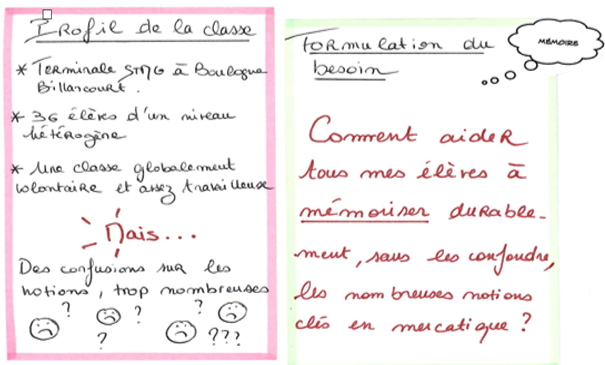 Profil de la classe
* Terminale STMG à Boulogne
Billancourt.
* 36 élèves d'un niveau
hétérogène
* Une classe globalement
volontaire et assez travailleuse
Mais...
Des confusions sur les
notions, trop nombreuses
? ? ?
? ???
Formulation du
besoin
MÉMOIRE
Comment aider
tous mes élèves à
mémoriser durable-
ment, sans les confondre,
les nombreuses notions
clés en mercatique ?